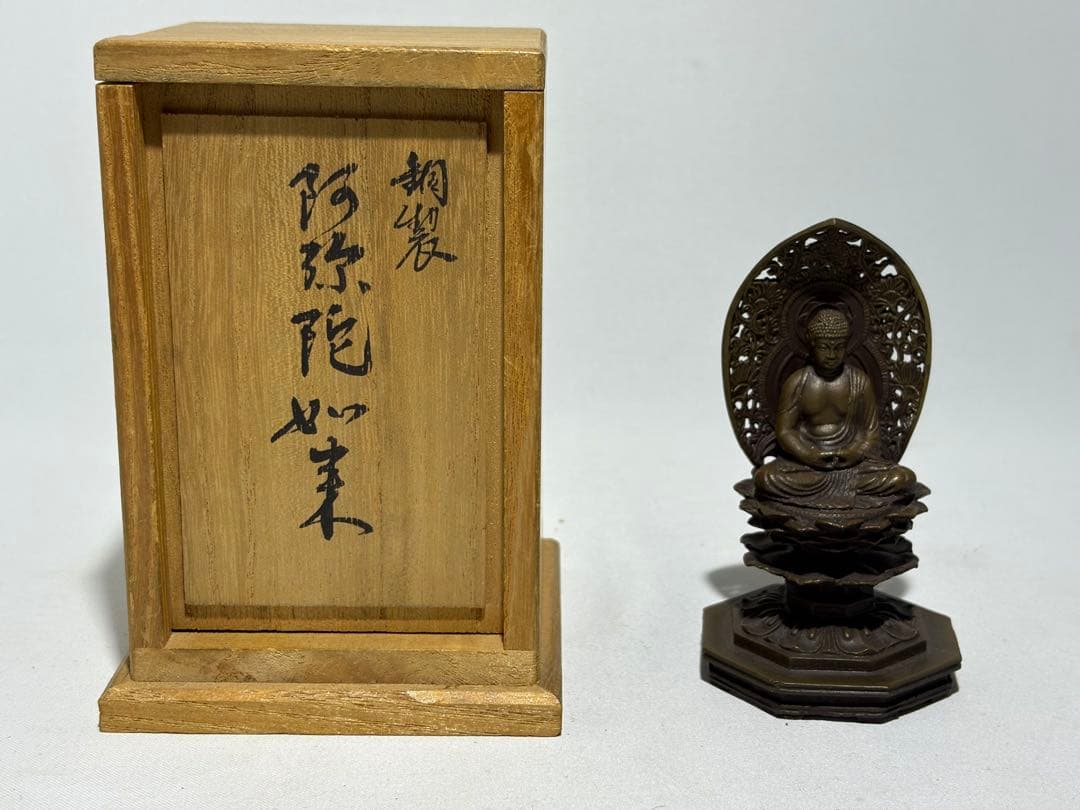 銅製
阿弥陀如来